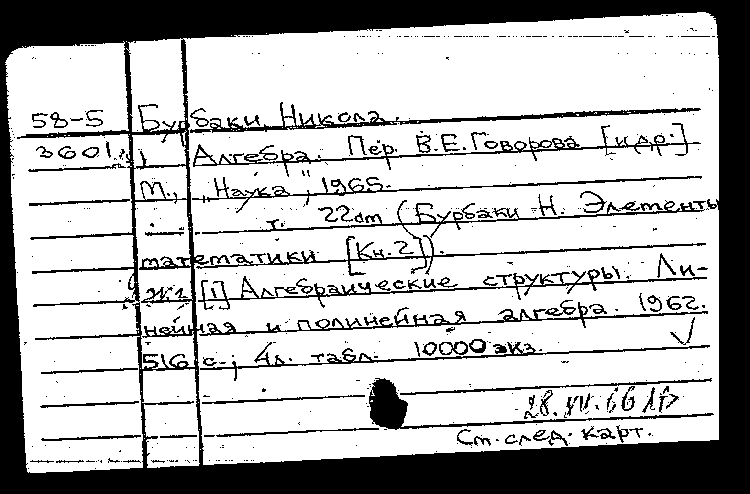 58-5 Бурбаки, Никола.
3601 Алгебра. Пер. В.Е. Говорова [и др.]
М., „Наука", 1965.
т. 22 cm (Бурбаки Н. Элементы
математики [Кн. 2]).
[1] Алгебраические структуры. Ли-
нейная и полинейная алгебра. 1962.
516 с.; 4 л. табл. 10000 экз.
28.
См. след. карт.